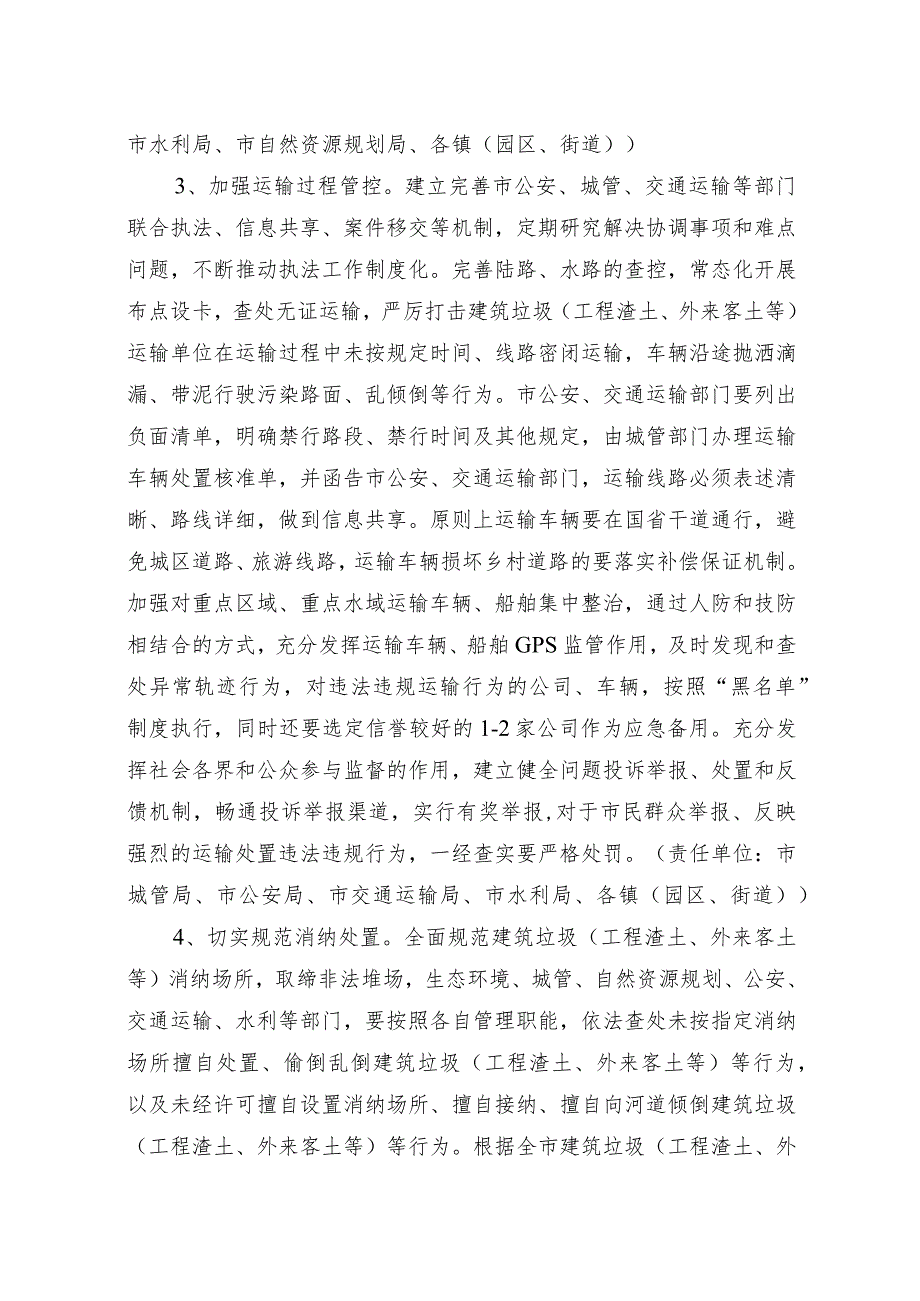 市水利局、市自然资源规划局、各镇（园区、街道））
3、加强运输过程管控。建立完善市公安、城管、交通运输等部门
联合执法、信息共享、案件移交等机制，定期研究解决协调事项和难点
问题，不断推动执法工作制度化。完善陆路、水路的查控，常态化开展
布点设卡，查处无证运输，严厉打击建筑垃圾（工程渣土、外来客土等）
运输单位在运输过程中未按规定时间、线路密闭运输，车辆沿途抛洒滴
漏、带泥行驶污染路面、乱倾倒等行为。市公安、交通运输部门要列出
负面清单，明确禁行路段、禁行时间及其他规定，由城管部门办理运输
车辆处置核准单，并函告市公安、交通运输部门，运输线路必须表述清
晰、路线详细，做到信息共享。原则上运输车辆要在国省干道通行，避
免城区道路、旅游线路，运输车辆损坏乡村道路的要落实补偿保证机制。
加强对重点区域、重点水域运输车辆、船舶集中整治，通过人防和技防
相结合的方式，充分发挥运输车辆、船舶GPS监管作用，及时发现和查
处异常轨迹行为，对违法违规运输行为的公司、车辆，按照“黑名单”
制度执行，同时还要选定信誉较好的1-2家公司作为应急备用。充分发
挥社会各界和公众参与监督的作用，建立健全问题投诉举报、处置和反
馈机制，畅通投诉举报渠道，实行有奖举报,对于市民群众举报、反映
强烈的运输处置违法违规行为，一经查实要严格处罚。（责任单位：市
城管局、市公安局、市交通运输局、市水利局、各镇（园区、街道））
4、切实规范消纳处置。全面规范建筑垃圾（工程渣土、外来客土
等）消纳场所，取缔非法堆场，生态环境、城管、自然资源规划、公安、
交通运输、水利等部门，要按照各自管理职能，依法查处未按指定消纳
场所擅自处置、偷倒乱倒建筑垃圾（工程渣土、外来客土等）等行为，
以及未经许可擅自设置消纳场所、擅自接纳、擅自向河道倾倒建筑垃圾
（工程渣土、外来客土等）等行为。根据全市建筑垃圾（工程渣土、外